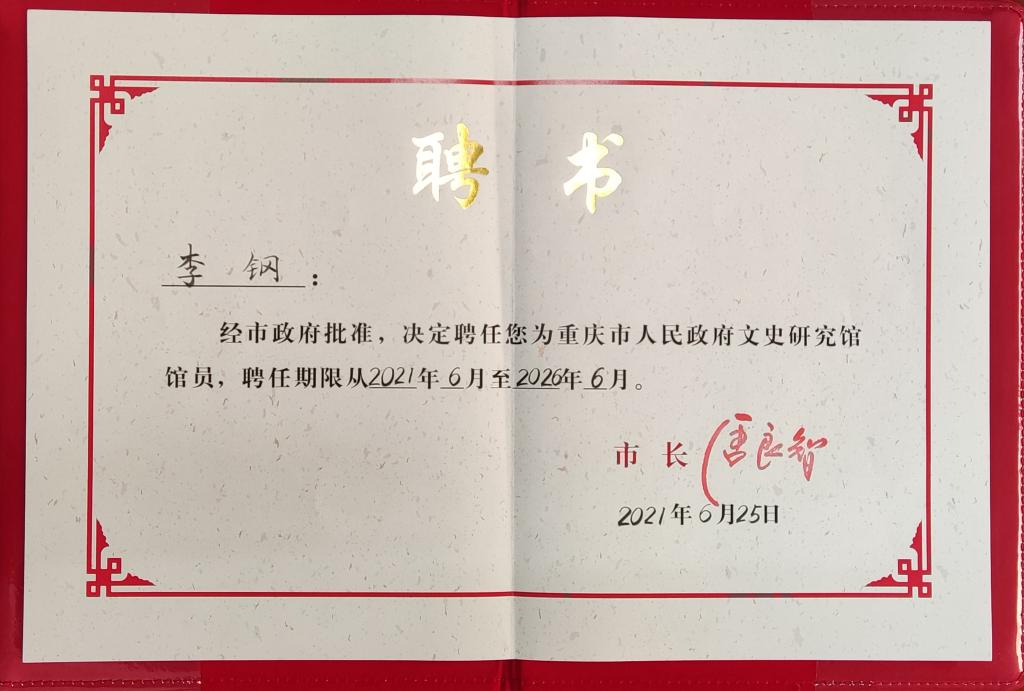 聘 书
李 钢：
经市政府批准，决定聘任您为重庆市人民政府文史研究馆
馆员，聘任期限从2021年6月至2026年6月。
市 长 唐良智
2021年6月25日